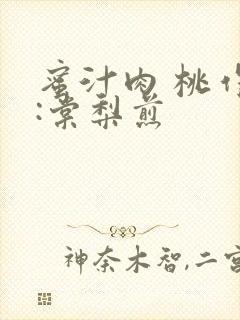 蜜汁肉桃作
:棠梨煎
神奈木智,二宫